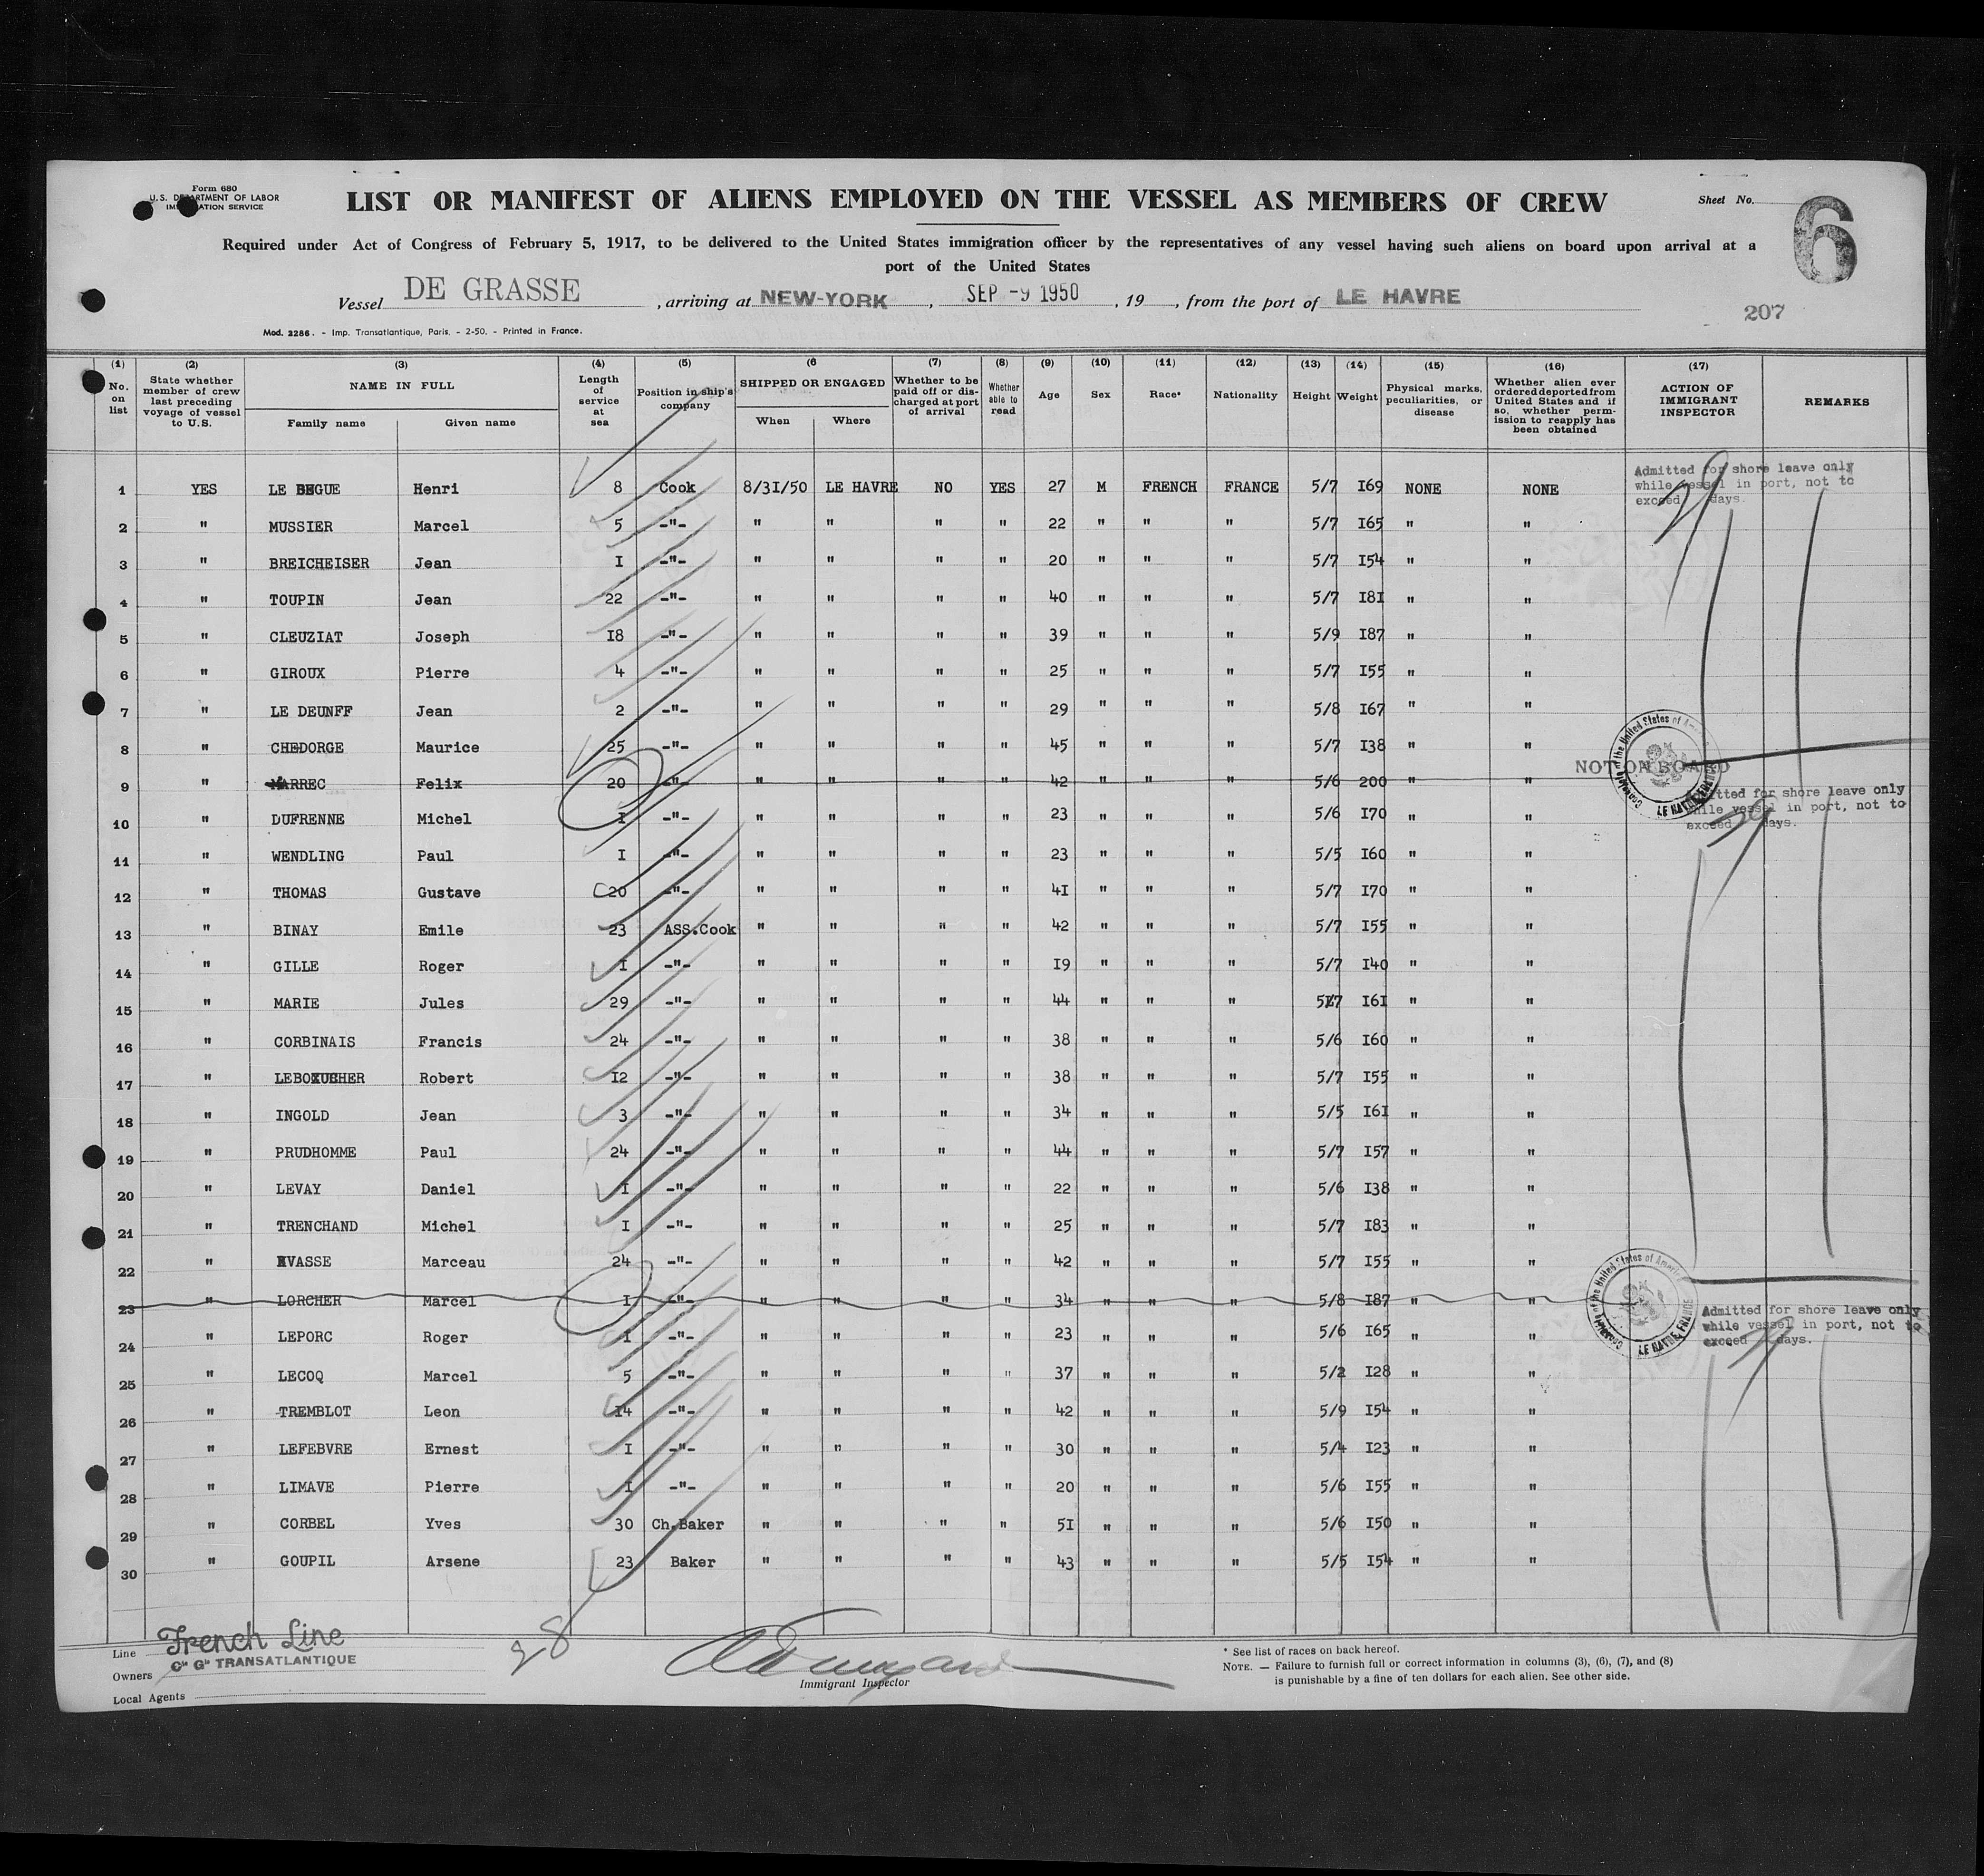 Form 680
U.S. DEPARTMENT OF LABOR
IMMIGRATION SERVICE
LIST OR MANIFEST OF ALIENS EMPLOYED ON THE VESSEL AS MEMBERS OF CREW
Sheet No. 6
Required under Act of Congress of February 5, 1917, to be delivered to the United States immigration officer by the representatives of any vessel having such aliens on board upon arrival at a
port of the United States
Vessel DE GRASSE , arriving at NEW-YORK , SEP -9 1950 , 19 , from the port of LE HAVRE
207
Mod. 2286. - Imp. Transatlantique, Paris. - 2-50. - Printed in France.
(1) (2) (3) (4) (5) (6 (7) (8) (9) (10) (11) (12) (13) (14) (15) (16) (17)
No. on list
State whether member of crew last preceding voyage of vessel to U.S.
NAME IN FULL
Family name Given name
Length of service at sea
Position in ship's company
SHIPPED OR ENGAGED
When Where
Whether to be paid off or discharged at port of arrival
Whether able to read
Age
Sex
Race*
Nationality
Height
Weight
Physical marks, peculiarities, or disease
Whether alien ever ordered deported from United States and if so, whether permission to reapply has been obtained
ACTION OF IMMIGRANT INSPECTOR
REMARKS
1 YES LE BEGUE Henri 8 Cook 8/31/50 LE HAVRE NO YES 27 M FRENCH FRANCE 5/7 169 NONE NONE
Admitted for shore leave only
while vessel in port, not to
exceed 29 days.
2 " MUSSIER Marcel 5 -"- " " " " 22 " " " 5/7 165 " "
3 " BREICHEISER Jean I -"- " " " " 20 " " " 5/7 154 " "
4 " TOUPIN Jean 22 -"- " " " " 40 " " " 5/7 181 " "
5 " CLEUZIAT Joseph 18 -"- " " " " 39 " " " 5/9 187 " "
6 " GIROUX Pierre 4 -"- " " " " 25 " " " 5/7 155 " "
7 " LE DEUNFF Jean 2 -"- " " " " 29 " " " 5/8 167 " "
8 " CHEDORGE Maurice 25 -"- " " " " 45 " " " 5/7 138 " "
9 " MARREC Felix 20 -"- " " " " 42 " " " 5/6 200 " " NOT ON BOARD
Consulate of the United States of America
LE HAVRE, FRANCE
Admitted for shore leave only
while vessel in port, not to
exceed 29 days.
10 " DUFRENNE Michel I -"- " " " " 23 " " " 5/6 170 " "
11 " WENDLING Paul I -"- " " " " 23 " " " 5/5 160 " "
12 " THOMAS Gustave 20 -"- " " " " 41 " " " 5/7 170 " "
13 " BINAY Emile 23 ASS.Cook " " " " 42 " " " 5/7 155 " "
14 " GILLE Roger I -"- " " " " 19 " " " 5/7 140 " "
15 " MARIE Jules 29 -"- " " " " 44 " " " 5/7 161 " "
16 " CORBINAIS Francis 24 -"- " " " " 38 " " " 5/6 160 " "
17 " Robert 12 -"- " " " " 38 " " " 5/7 155 " "
18 " INGOLD Jean 3 -"- " " " " 34 " " " 5/5 161 " "
19 " PRUDHOMME Paul 24 -"- " " " " 44 " " " 5/7 157 " "
20 " LEVAY Daniel I -"- " " " " 22 " " " 5/6 138 " "
21 " TRENCHAND Michel I -"- " " " " 25 " " " 5/7 183 " "
22 " Marceau 24 -"- " " " " 42 " " " 5/7 155 " "
23 " LORCHER Marcel I -"- " " " " 34 " " " 5/8 187 " "
Consulate of the United States of America
LE HAVRE, FRANCE
Admitted for shore leave only
while vessel in port, not to
exceed 29 days.
24 " LEPORC Roger I -"- " " " " 23 " " " 5/6 165 " "
25 " LECOQ Marcel 5 -"- " " " " 37 " " " 5/2 128 " "
26 " TREMBLOT Leon 14 -"- " " " " 42 " " " 5/9 154 " "
27 " LEFEBVRE Ernest I -"- " " " " 30 " " " 5/4 123 " "
28 " LIMAVE Pierre I -"- " " " " 20 " " " 5/6 155 " "
29 " CORBEL Yves 30 Ch.Baker " " " " 51 " " " 5/6 150 " "
30 " GOUPIL Arsene 23 Baker " " " " 43 " " " 5/5 154 " "
Line French Line
Owners Cie Gle TRANSATLANTIQUE
Local Agents
28
Immigrant Inspector
* See list of races on back hereof.
NOTE. — Failure to furnish full or correct information in columns (3), (6), (7), and (8)
is punishable by a fine of ten dollars for each alien. See other side.